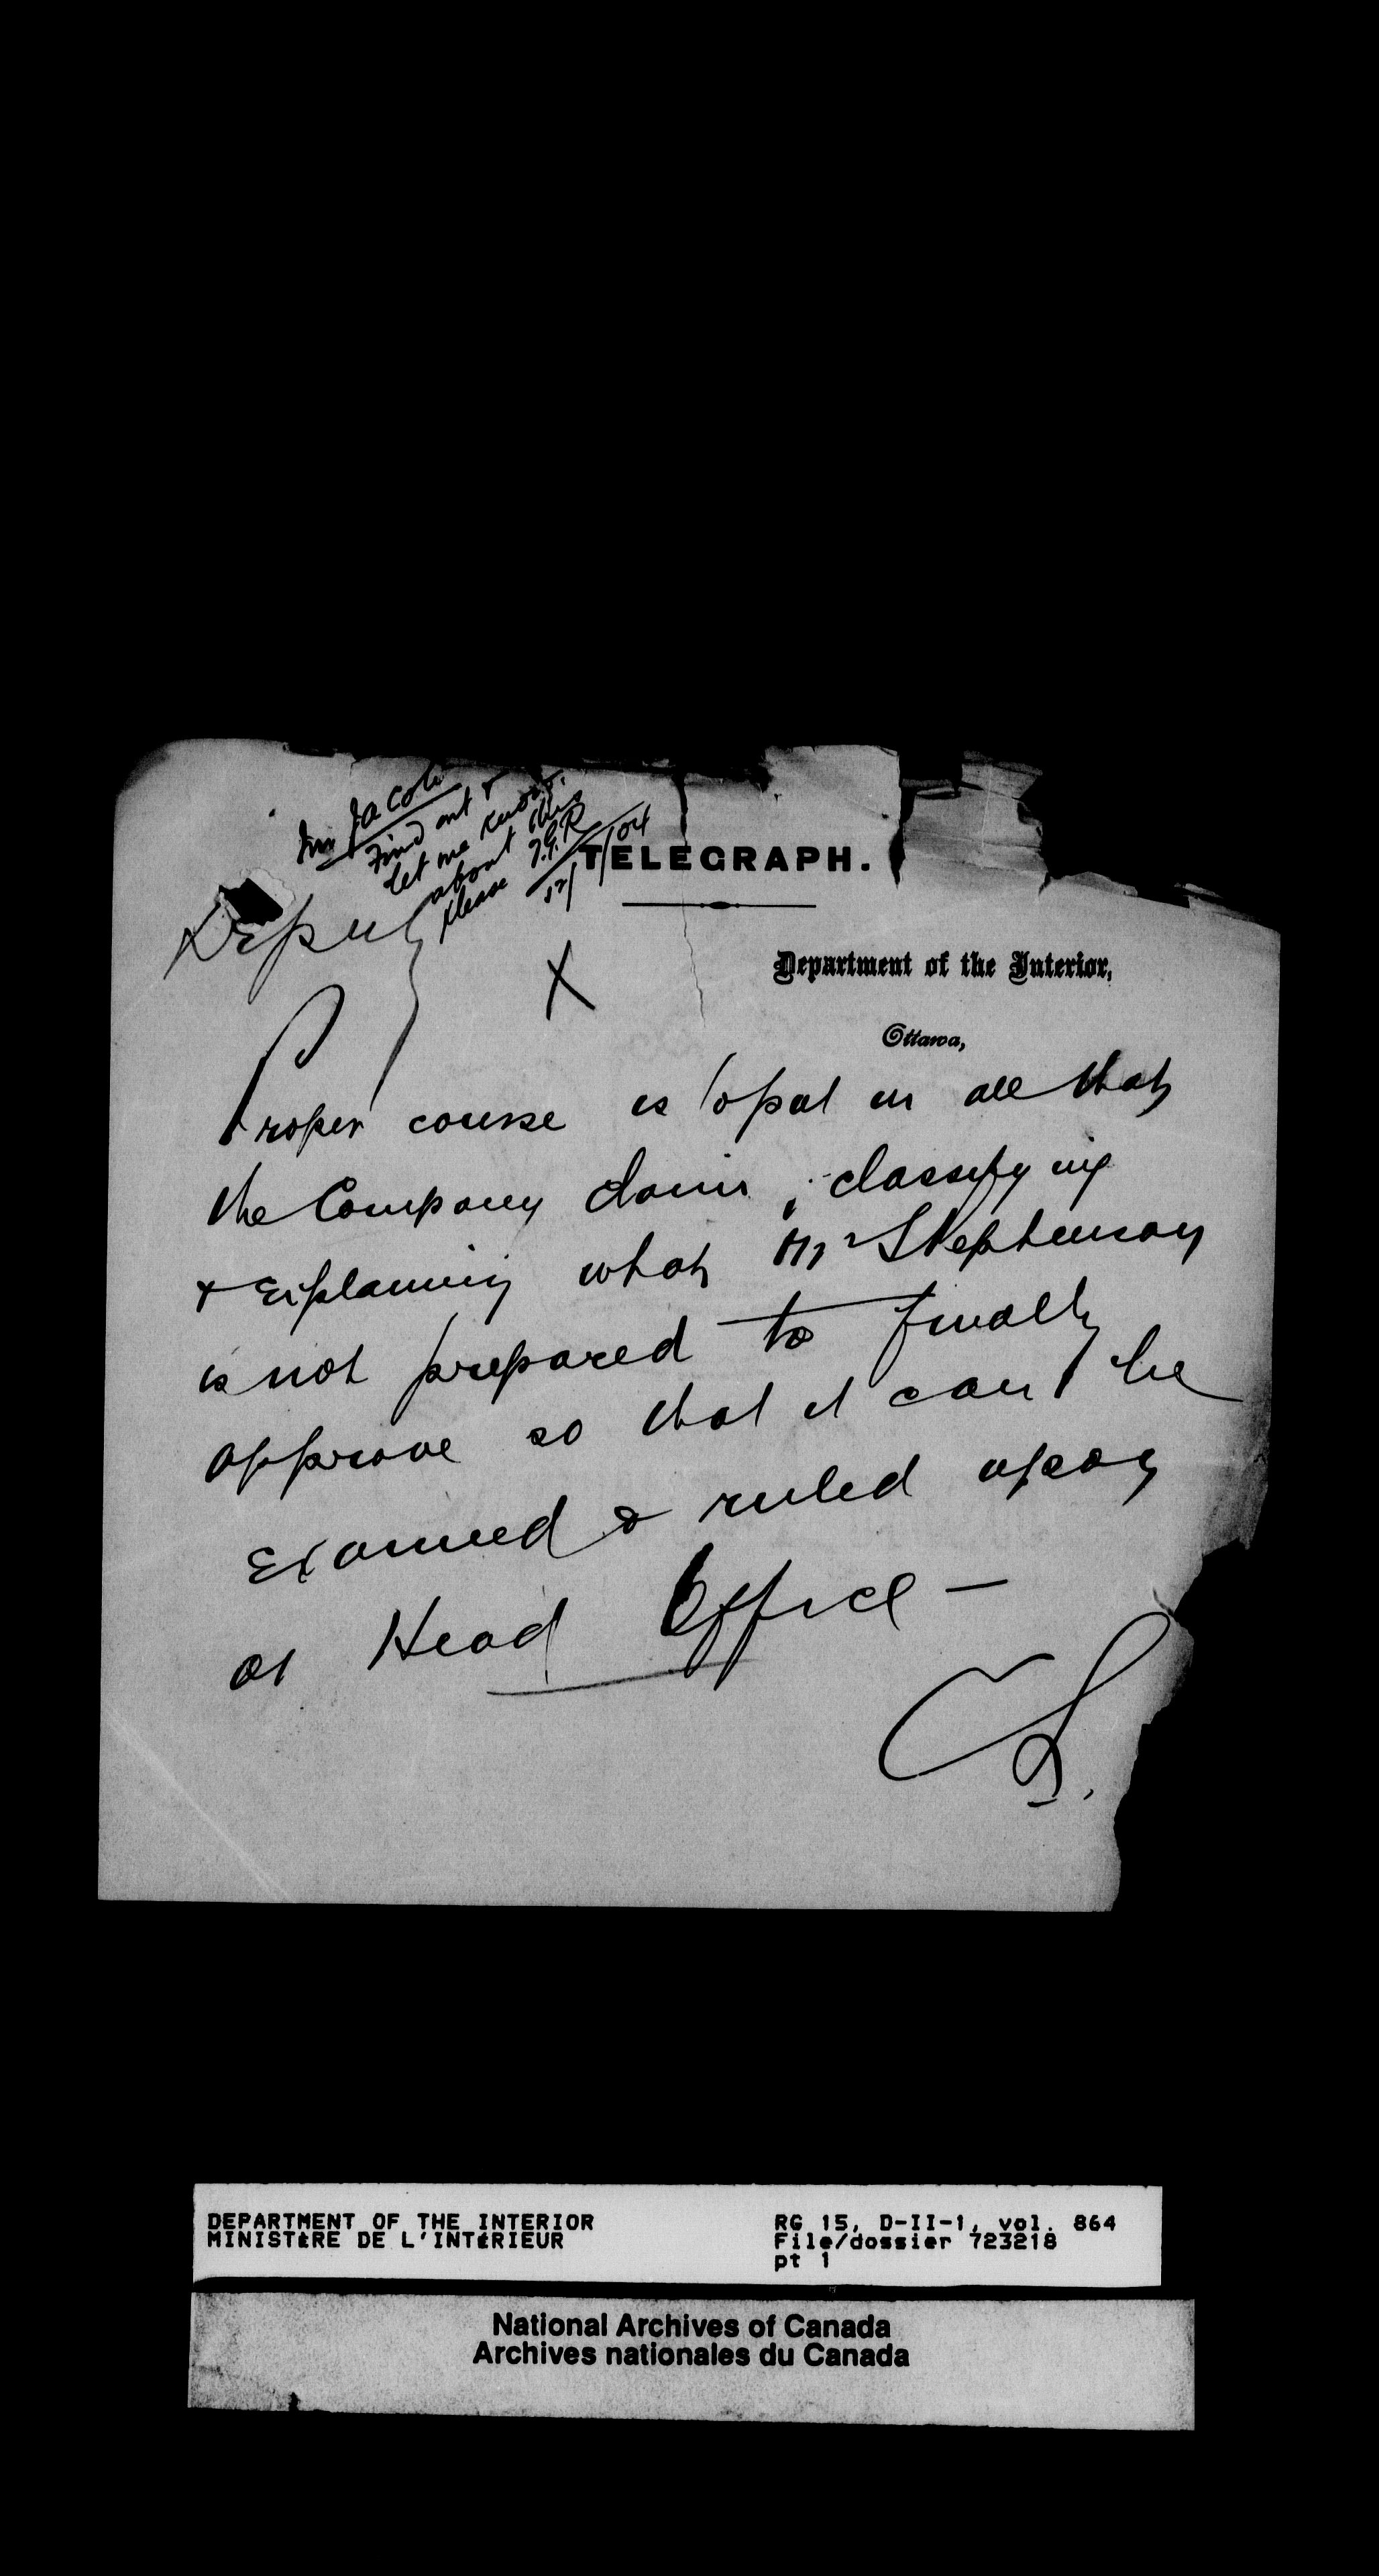 Mr Jacobs
Find out &
let me know
about this
please T.G.R
12/1/04
TELEGRAPH.
Deputy
X
Department of the Interior,
Ottawa,
Proper course is to put in all that
the Company claim, classifying
& Explaining what Mr Stephenson
is not prepared to finally
approve so that it can be
Examined & ruled upon
at Head Office —
CS.
DEPARTMENT OF THE INTERIOR
MINISTÈRE DE L'INTÉRIEUR
RG 15, D-II-1, vol. 864
File/dossier 723218
pt 1
National Archives of Canada
Archives nationales du Canada